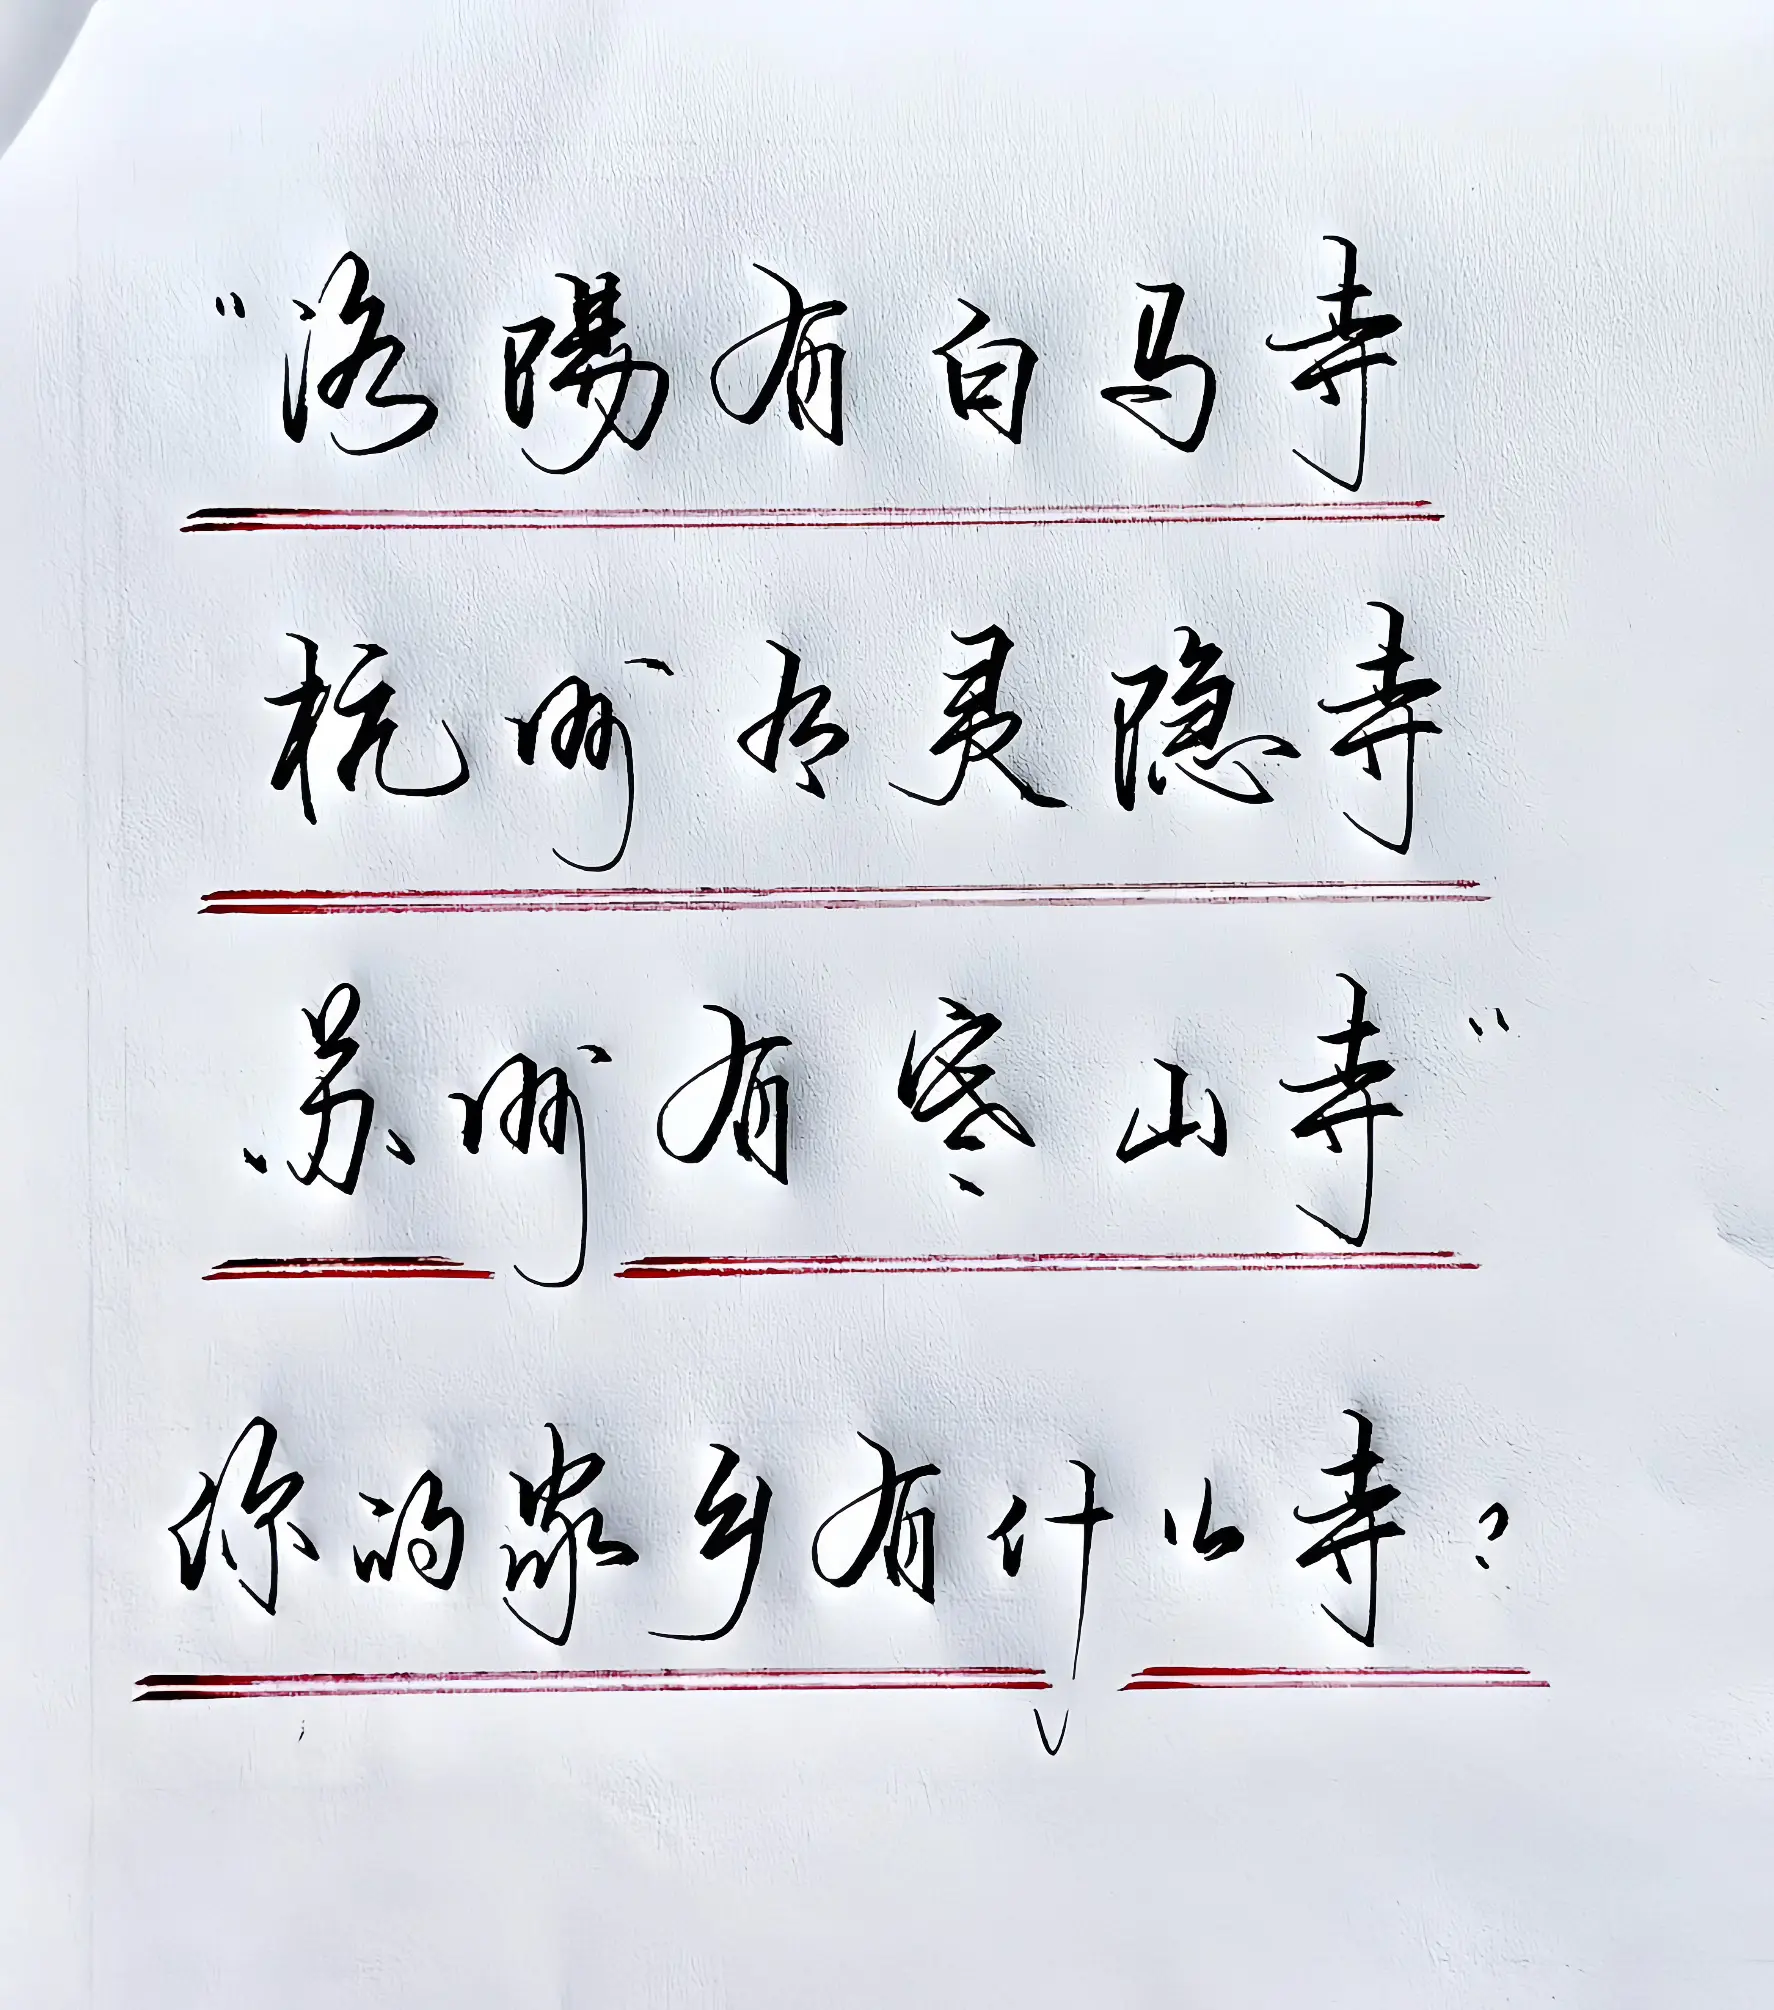 “洛陽有白马寺
杭州有灵隐寺
苏州有寒山寺”
你的家乡有什么寺?